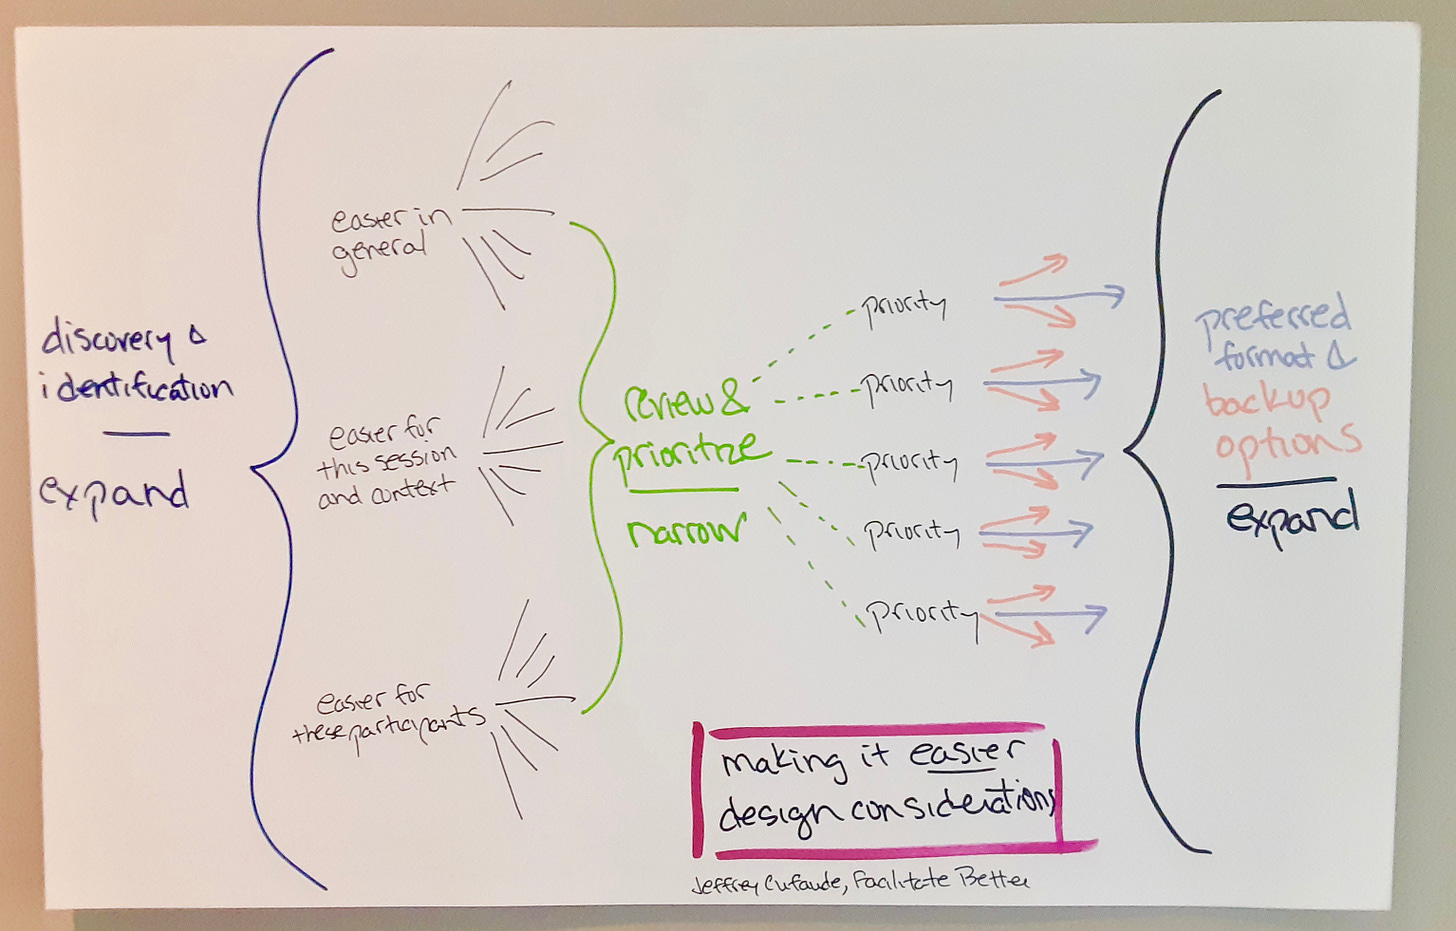 discovery &
identification
expand
easier in
general
easier for
this session
and context
easier for
these participants
review &
prioritize
narrow
priority
priority
priority
priority
priority
preferred
format &
backup
options
expand
making it easier
design considerations
Jeffrey Cufaude, Facilitate Better